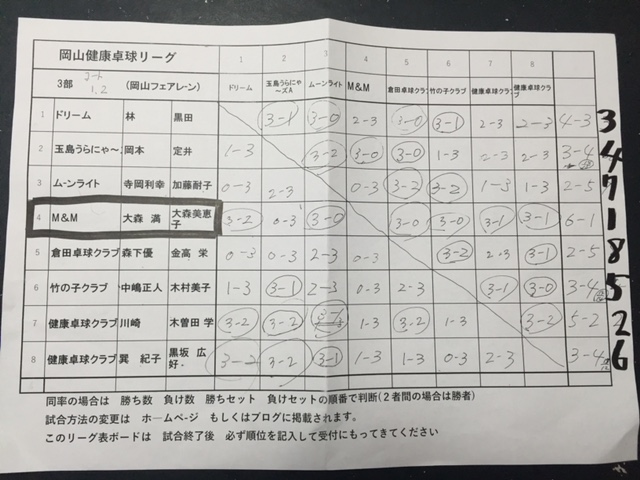 岡山健康卓球リーグ 1 2 3 4 5 6 7 8
3部 コート 1.2 (岡山フェアレーン) ドリーム 玉島うらにゃ～ズA ムーンライト M&M 倉田卓球クラブ 竹の子クラブ 健康卓球クラブ 健康卓球クラブ
1 ドリーム 林 黒田 3-1 3-0 2-3 3-0 3-1 2-3 2-3 4-3 3
2 玉島うらにゃ～ 岡本 定井 1-3 3-2 3-0 3-0 1-3 2-3 2-3 3-4 4
3 ムーンライト 寺岡利幸 加藤耐子 0-3 2-3 0-3 3-2 3-2 1-3 1-3 2-5 7
4 M&M 大森 満 大森美恵子 3-2 0-3 3-0 3-0 3-0 3-1 3-1 6-1 1
5 倉田卓球クラブ 森下優 金高 栄 0-3 0-3 2-3 0-3 3-2 2-3 3-1 2-5 8
6 竹の子クラブ 中嶋正人 木村美子 1-3 3-1 2-3 0-3 2-3 3-1 3-0 3-4 5
7 健康卓球クラブ 川崎 木曽田 学 3-2 3-2 1-3 3-2 1-3 3-2 5-2 2
8 健康卓球クラブ 巽 紀子 黒坂 広好 3-2 3-2 3-1 1-3 1-3 0-3 2-3 3-4 6
同率の場合は 勝ち数 負け数 勝ちセット 負けセットの順番で判断(２者間の場合は勝者)
試合方法の変更は ホームページ もしくはブログに掲載されます。
このリーグ表ボードは 試合終了後 必ず順位を記入して受付にもってきてください